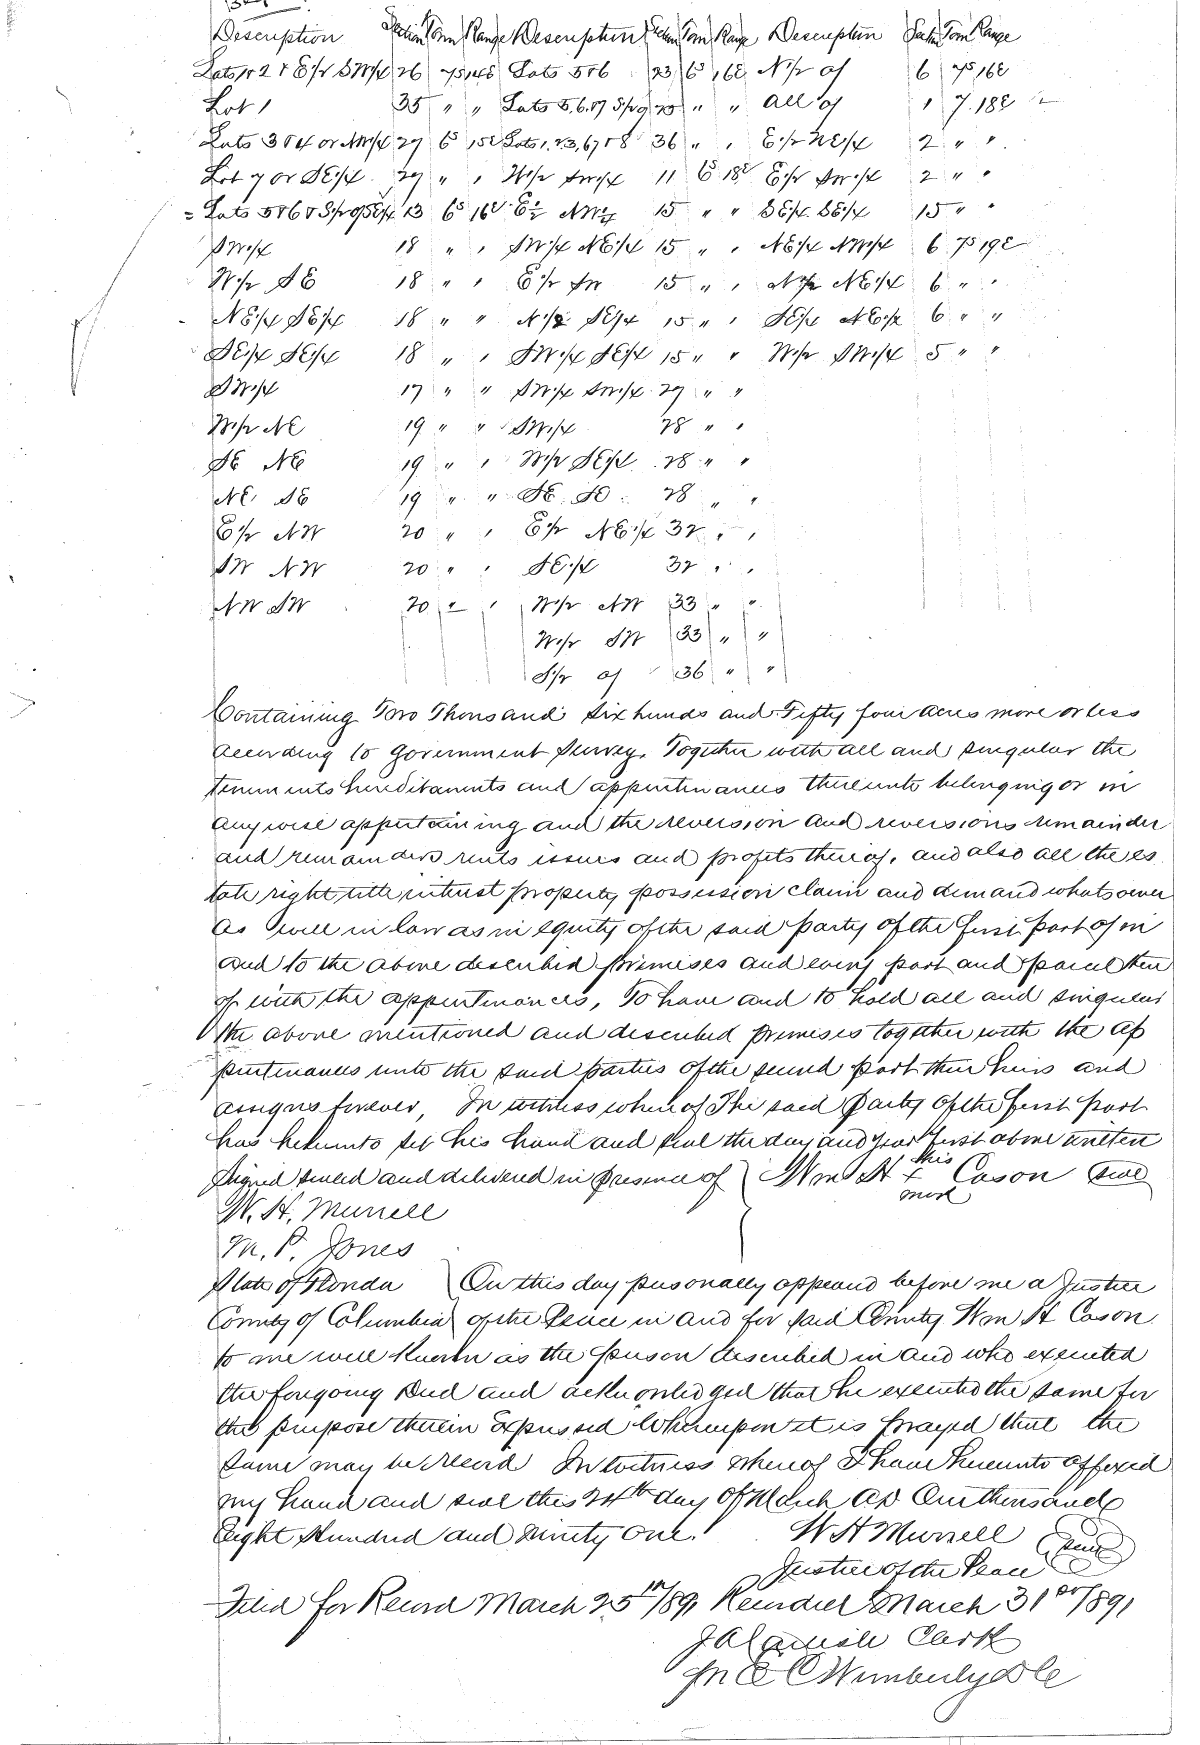 Description Section Town Range Description Section Town Range Description Section Town Range
Lots 1 & 2 & E1/2 SW1/4 26 7S 14E Lots 5 & 6 23 6S 16E N1/2 of 6 7S 16E
Lot 1 35 " " Lots 5, 6, & 7 S1/2 " " All of " 7 . 18E
Lots 3 & 4 or NW1/4 29 6 15E Lots 1, 2, 3, 6, 7 & 8 36 " " E1/2 NE1/4 2 " "
Lot 7 or SE1/4 29 " " W1/2 SW1/4 11 6S 18E E1/2 SW1/4 2 " "
Lots 5 & 6 & S1/2 of SE1/4 13 6S 16E E1/2 NW1/4 15 " " SE1/4 SE1/4 15 " "
SW1/4 18 " " SW1/4 NE1/4 15 " " NE1/4 NW1/4 6 7S 19E
W1/2 SE 18 " " E1/2 SW 15 " " N1/2 NE1/4 6 " "
NE1/4 SE1/4 18 " " N1/2 SE1/4 15 " " SE1/4 NE1/4 6 " "
SE1/4 SE1/4 18 " " SW1/4 SE1/4 15 " " W1/2 SW1/4 5 " "
SW1/4 17 " " SW1/4 SW1/4 27 " "
W1/2 NE 19 " " SW1/4 28 " "
SE NE 19 " " W1/2 SE1/4 28 " "
NE SE 19 " " SE SE 28 " "
E1/2 NW 20 " " E1/2 NE1/4 32 " "
SW NW 20 " " SE1/4 32 " "
NW SW 20 " " W1/2 NW 33 " "
W1/2 SW 33 " "
S1/2 of 36 " "
Containing Two Thousand Six hunds and Fifty four acres more or less
according to Government Survey. Together with all and singular the
tenements hereditaments and appurtenances thereunto belonging or in
any wise appertaining and the reversion and reversions remainder
and remainders rents issues and profits thereof, and also all the es
tate right title interest property possession claim and demand whatsoever
as well in law as in equity of the said party of the first part of in
and to the above described premises and every part and parcel there
of with the appurtenances, To have and to hold all and singular
the above mentioned and described premises together with the ap
purtenances unto the said parties of the second part their heirs and
assigns forever, In witness whereof The said party of the first part
has hereunto set his hand and seal the day and year first above written
Signed sealed and delivered in presence of Wm H his x mark Cason seal
W. H. Murrell
M. P. Jones
State of Florida On this day personally appeared before me a Justice
County of Columbia of the Peace in and for said County Wm H Cason
to me well known as the person described in and who executed
the foregoing Deed and acknowledged that he executed the same for
the purpose therein expressed Whereupon it is prayed that the
same may be record In witness whereof I have hereunto affixed
my hand and seal this 24th day of March AD One thousand
Eight Hundred and Ninety One. W H Murrell seal
Justice of the Peace
Filed for Record March 25th/891 Recorded March 31st/891
Clerk
Wimberly DC